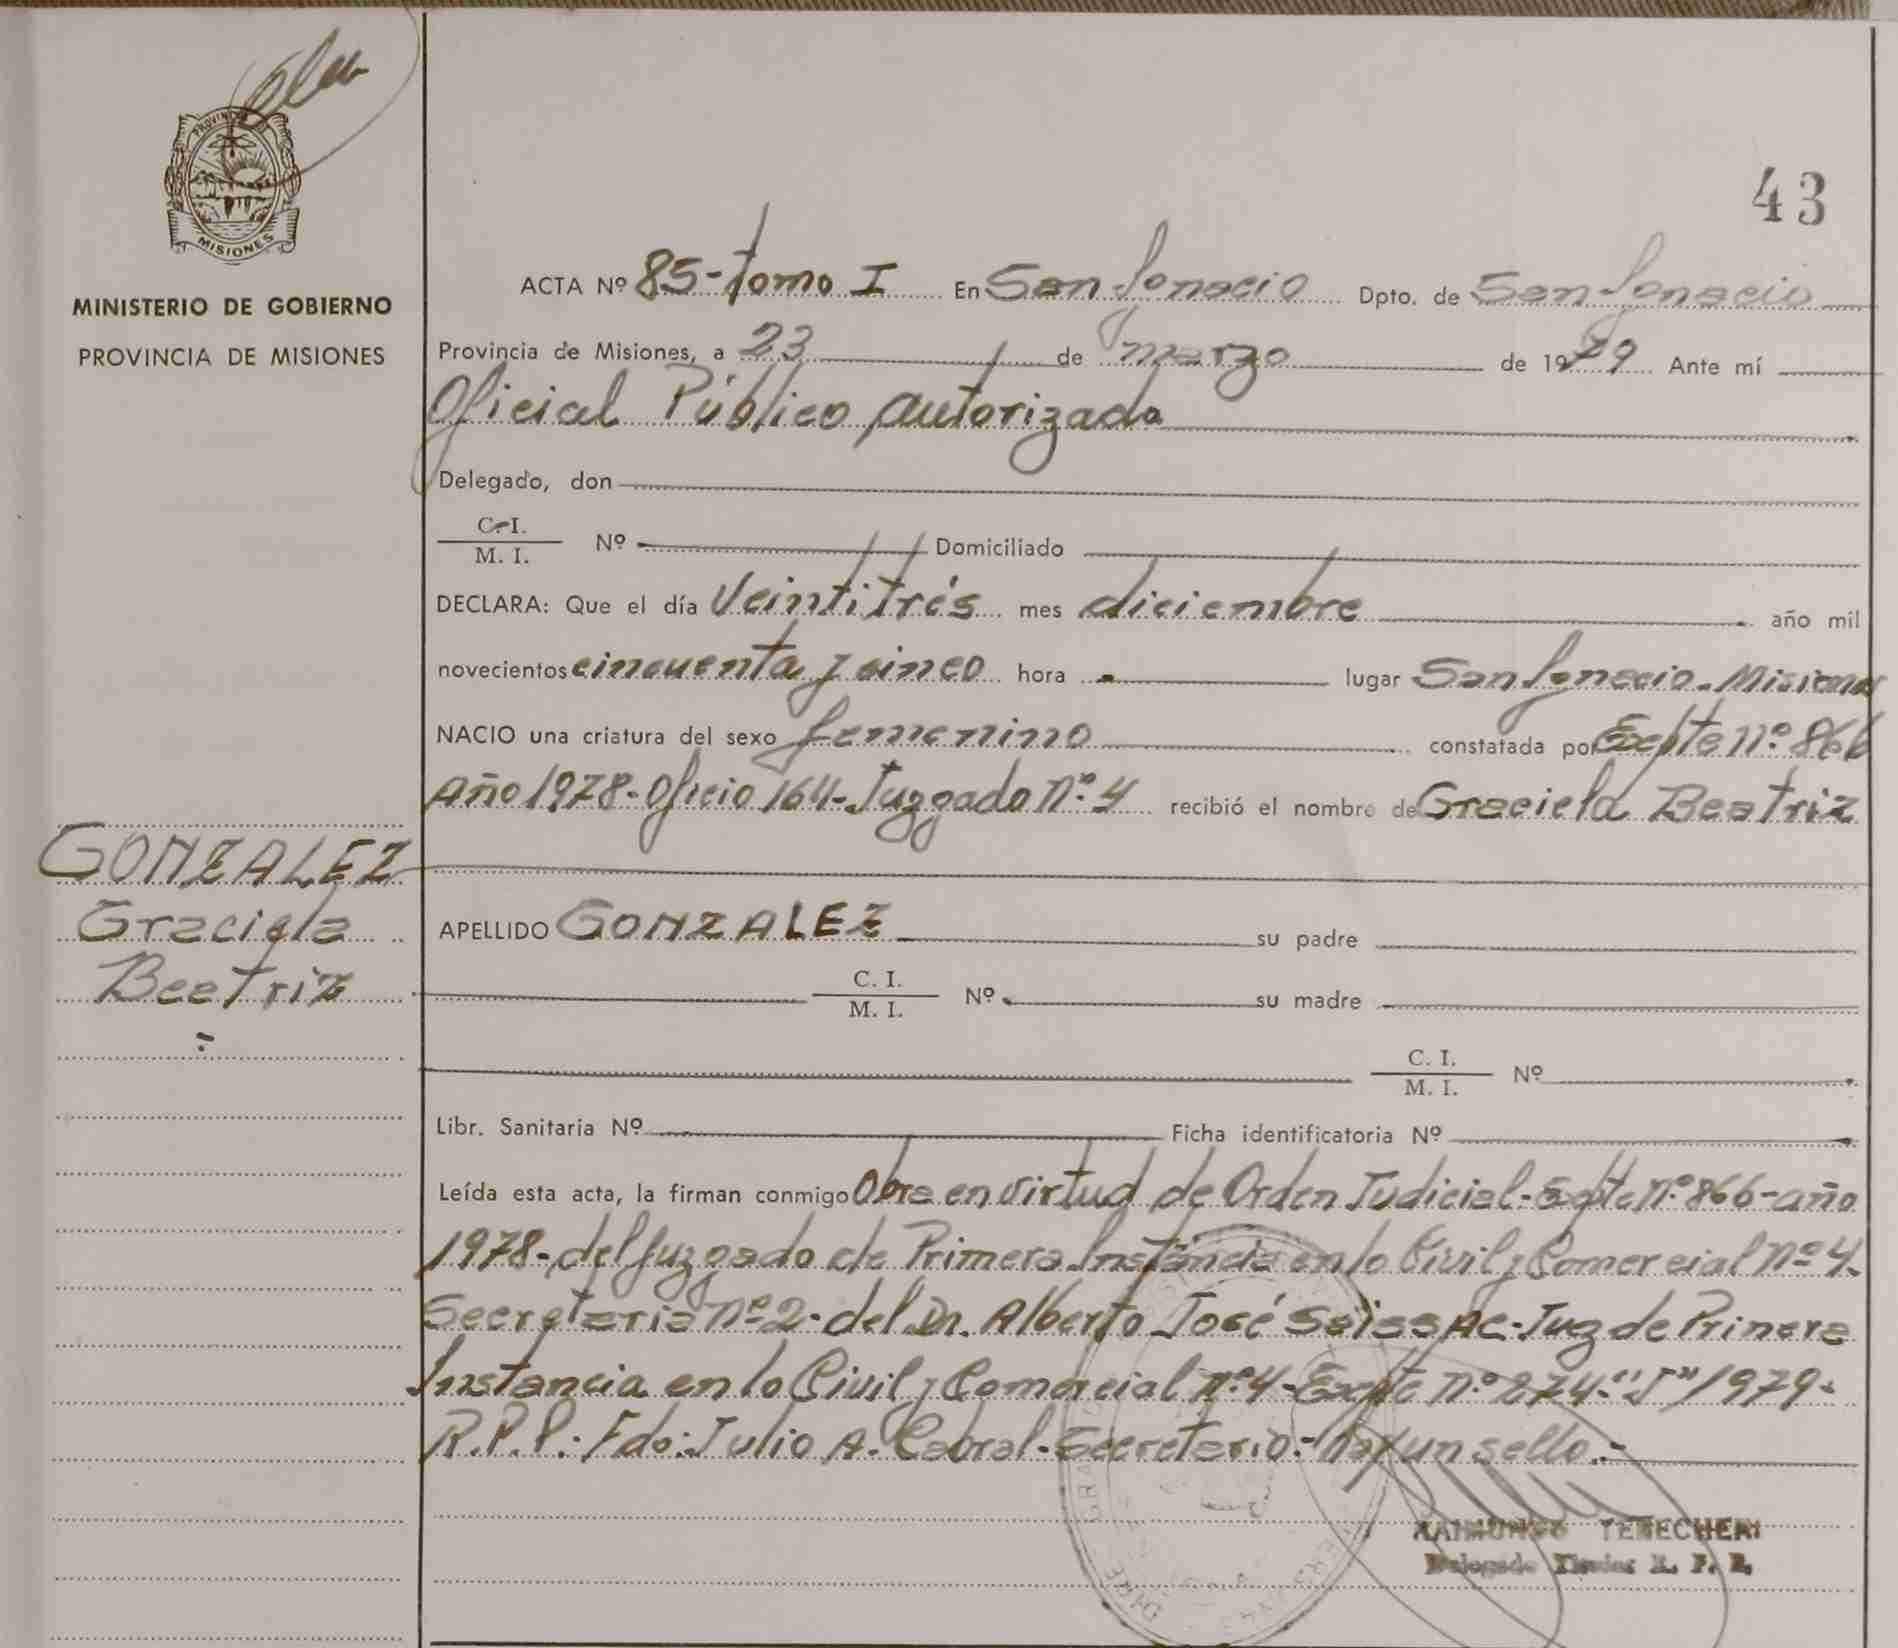 PROVINCIA DE
MISIONES
MINISTERIO DE GOBIERNO
PROVINCIA DE MISIONES
GONZALEZ
Graciela
Beatriz
43
ACTA Nº 85-tomo I En San Ignacio Dpto. de San Ignacio
Provincia de Misiones, a 23 de marzo de 1979 Ante mí
Oficial Público Autorizado
Delegado, don
C. I.
M. I. Nº Domiciliado
DECLARA: Que el día Veintitrés mes diciembre año mil
novecientos cincuenta y cinco hora lugar San Ignacio-Misiones
NACIO una criatura del sexo femenino constatada por Expte nº 866
Año 1978-Oficio 164-Juzgado Nº 4 recibió el nombre de Graciela Beatriz
APELLIDO GONZALEZ su padre
C. I.
M. I. Nº su madre
C. I.
M. I. Nº
Libr. Sanitaria Nº Ficha identificatoria Nº
Leída esta acta, la firman conmigo Obra en virtud de Orden Judicial-Expte nº 866-año
1978-del Juzgado de Primera Instancia en lo Civil y Comercial nº 4-
Secretaria nº 2-del Dr. Alberto José Seissac-Juz de Primera
Instancia en lo Civil y Comercial nº 4-Expte nº 274-"J"/1979-
R.P.P.-Fdo: Julio A. Cabral-Secretario.-hay un sello.-
Delegado Titular R. P. P.